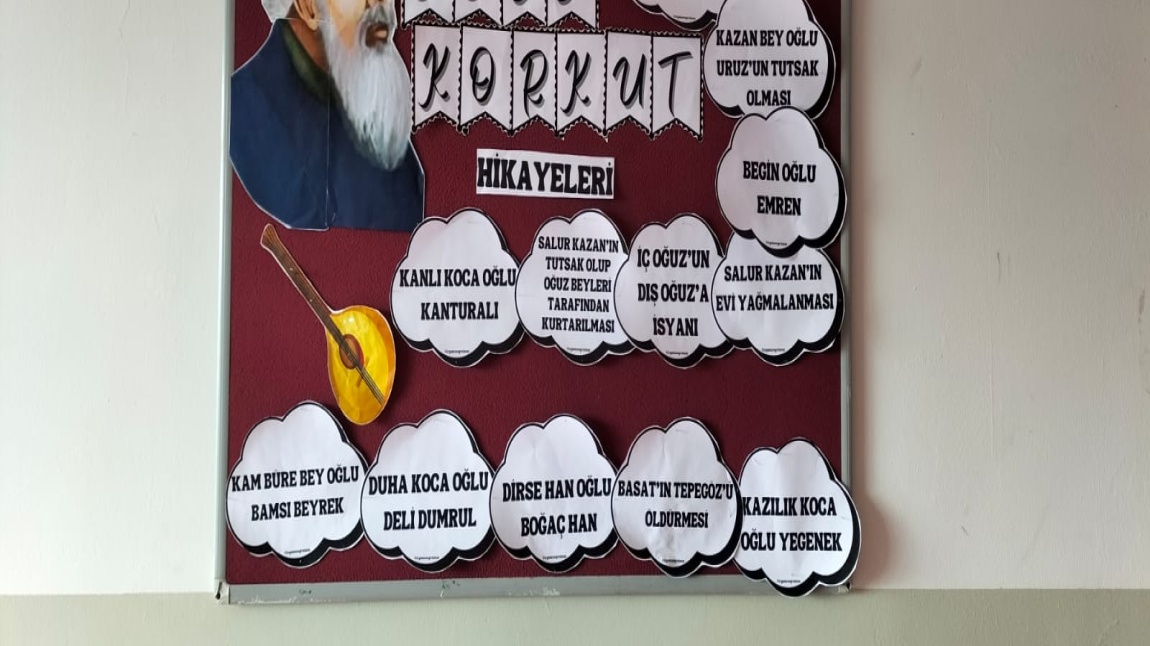 KORKUT
HİKAYELERİ
KAZAN BEY OĞLU
URUZ'UN TUTSAK
OLMASI
BEGİN OĞLU
EMREN
KANLI KOCA OĞLU
KANTURALI
SALUR KAZAN'IN
TUTSAK OLUP
OĞUZ BEYLERİ
TARAFINDAN
KURTARILMASI
İÇ OĞUZ'UN
DIŞ OĞUZ'A
İSYANI
SALUR KAZAN'IN
EVİ YAĞMALANMASI
KAM BÜRE BEY OĞLU
BAMSI BEYREK
DUHA KOCA OĞLU
DELİ DUMRUL
DİRSE HAN OĞLU
BOĞAÇ HAN
BASAT'IN TEPEGÖZ'Ü
ÖLDÜRMESİ
KAZILIK KOCA
OĞLU YEGENEK